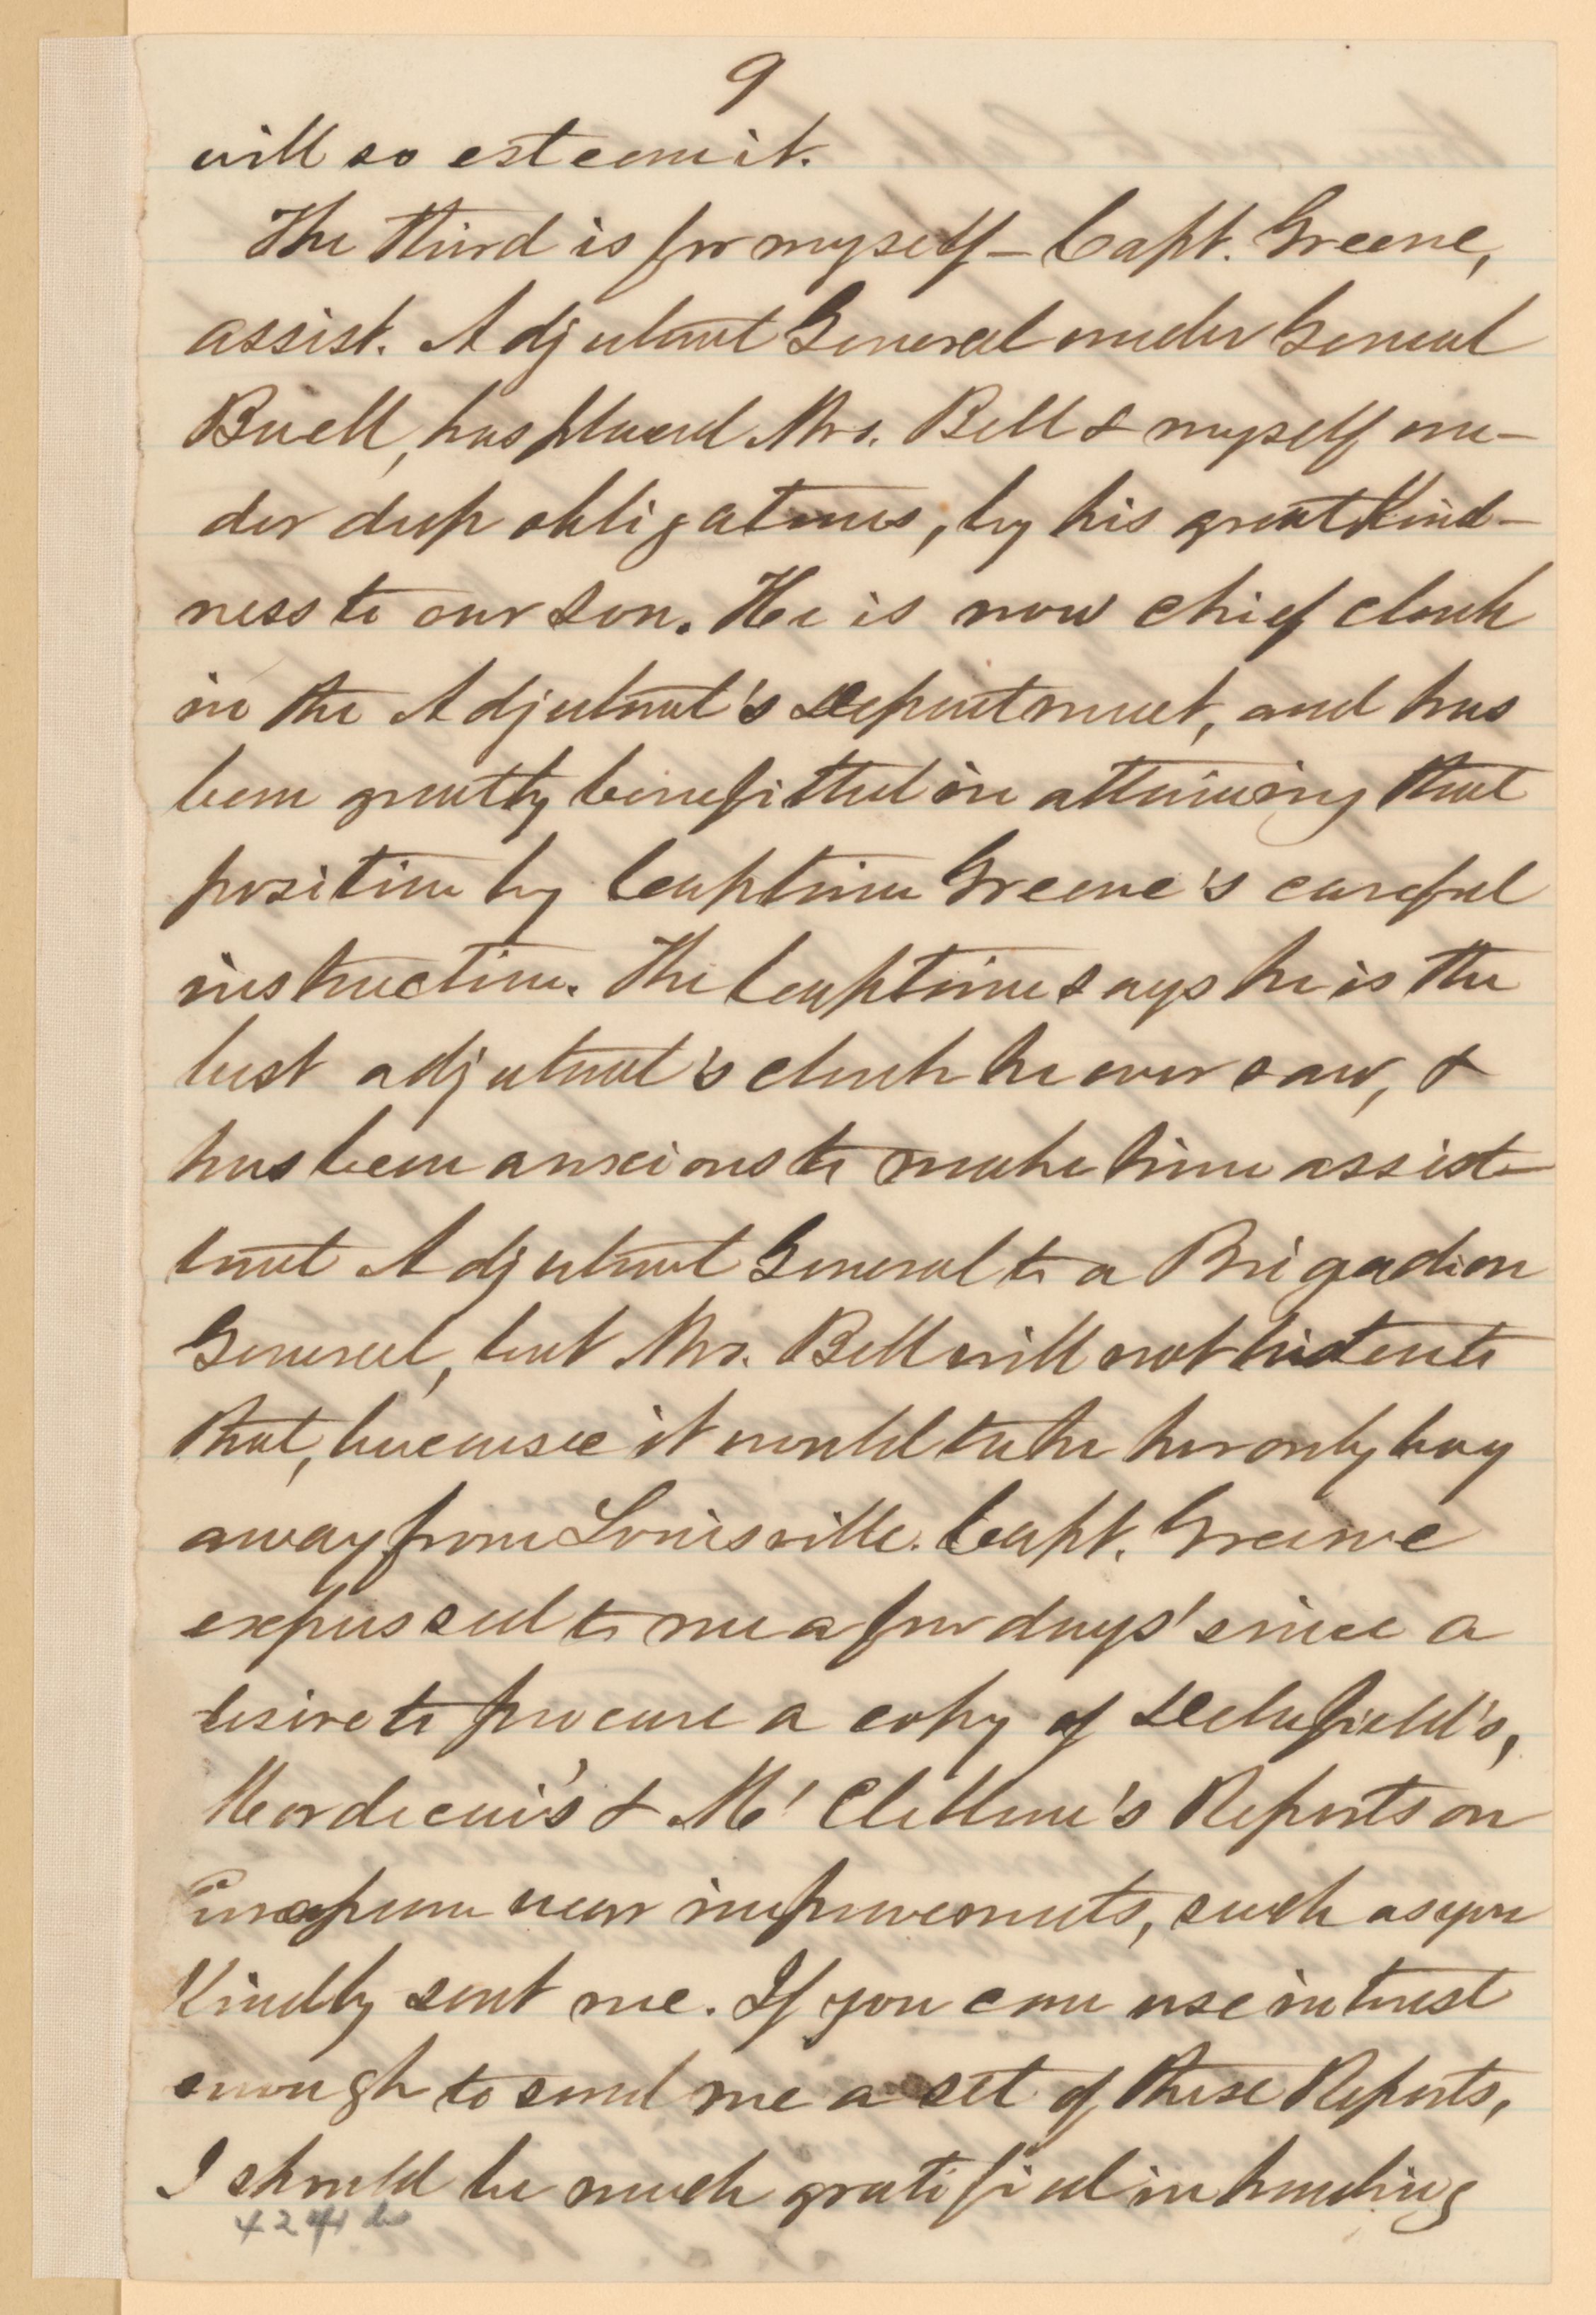 9
will so esteem it.
The third is for myself – Capt. Greene,
assist. Adjutant General under General
Buell, has placed Mrs. Bell & myself un-
der deep obligations, by his great kind-
ness to our son. He is now chief clerk
in the Adjutant's Department, and has
been greatly benefitted in attaining that
position by Captain Greene's careful
instruction. The Captain says he is the
best adjutant's clerk he ever saw, &
has been anxious to make him assist-
tant Adjutant General to a Brigadier
General, but Mrs. Bell will not listen to
that, because it would take her only boy
away from Louisville. Capt. Greene
expressed to me a few days' since a
desire to procure a copy of Delafield's,
Mordecai's & Mc' Clellan's Reports on
European war improvements, such as you
kindly sent me. If you can use interest
enough to send me a set of these Reports,
I should be much gratified in handing